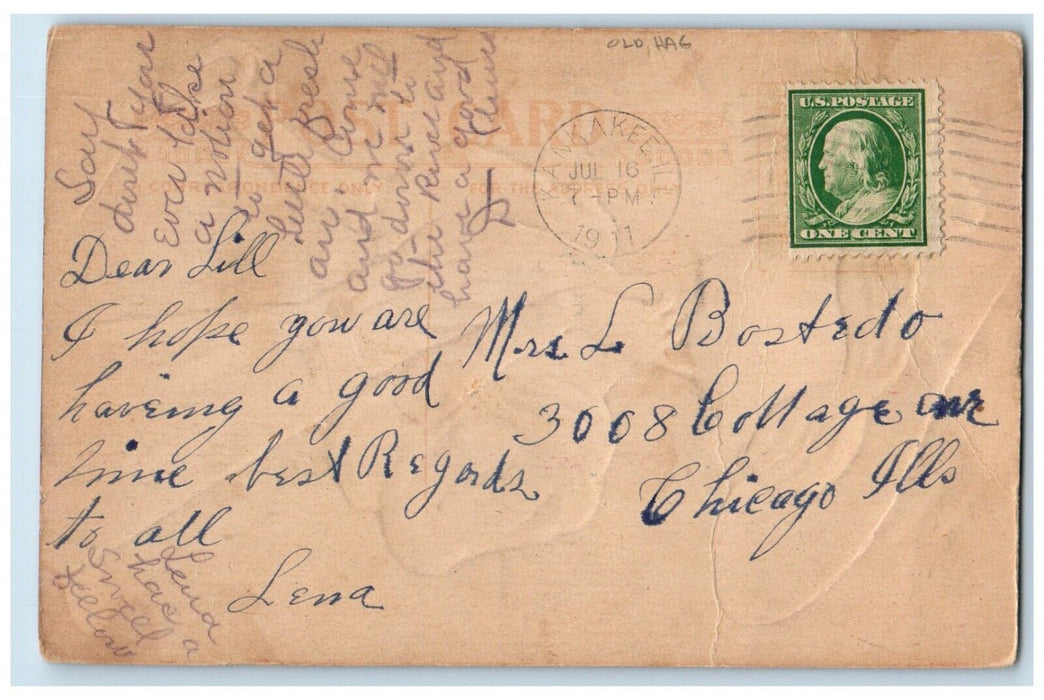 OLD HAG
POST CARD
CORRESPONDENCE ONLY
FOR THE ADDRESS ONLY
KANKAKEE, ILL
JUL 16
7-PM
1911
U.S. POSTAGE
ONE CENT
Say
dont you
Ever take
a notion
to get a
little fresh
air. Come
and we will
go down to
the River and
have a good
time
Dear Lill
I hope you are
haveing a good
time best Regards
to all
Lena
Lena
has a
Swell
fellow
Mrs L Bostedo
3008 Cottage ave
Chicago Ills